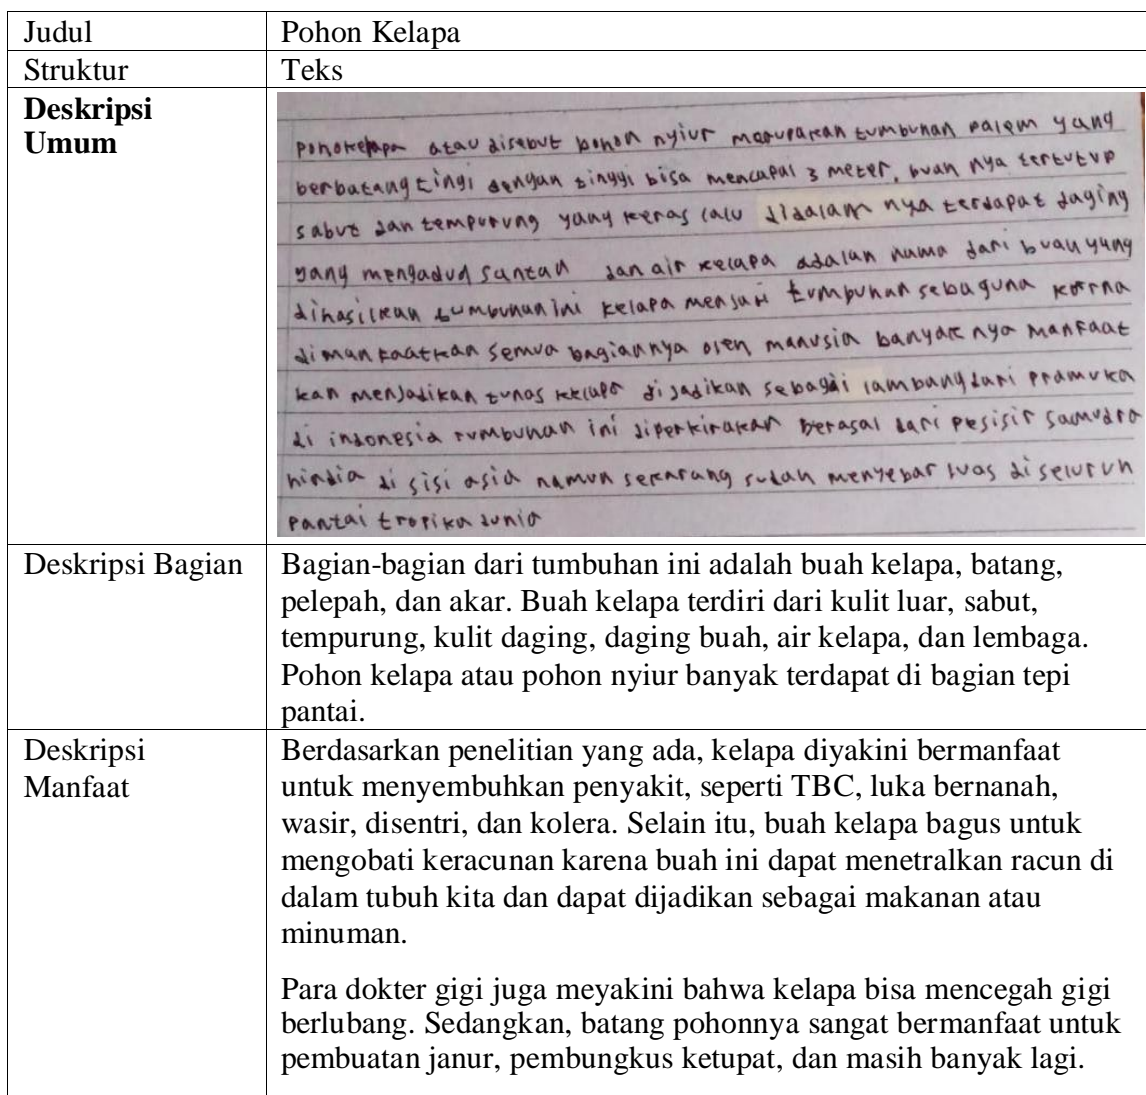 Judul Pohon Kelapa
Struktur Teks
Deskripsi Umum
atau disebut bohon nyiur merupakan tumbuhan palem yang
berbatang tingi dengan tinggi bisa mencapai 3 meter, buah nya tertutup
sabut dan tempurung yang keras lalu didalam nya terdapat daging
yang santan dan air kelapa adalah nama dari buah yang
dihasilkan tumbuhan ini kelapa menjadi tumbuhan sebaguna
dimanfaatkan semua bagiannya oleh manusia banyak nya manfaat
kan menjadikan tunas kelapa dijadikan sebagai lambang dari pramuka
di indonesia tumbuhan ini diperkirakan berasal dari pesisir samudra
hindia di sisi asia namun sekarang sudah menyebar luas di seluruh
pantai tropika dunia
Deskripsi Bagian
Bagian-bagian dari tumbuhan ini adalah buah kelapa, batang,
pelepah, dan akar. Buah kelapa terdiri dari kulit luar, sabut,
tempurung, kulit daging, daging buah, air kelapa, dan lembaga.
Pohon kelapa atau pohon nyiur banyak terdapat di bagian tepi
pantai.
Deskripsi Manfaat
Berdasarkan penelitian yang ada, kelapa diyakini bermanfaat
untuk menyembuhkan penyakit, seperti TBC, luka bernanah,
wasir, disentri, dan kolera. Selain itu, buah kelapa bagus untuk
mengobati keracunan karena buah ini dapat menetralkan racun di
dalam tubuh kita dan dapat dijadikan sebagai makanan atau
minuman.
Para dokter gigi juga meyakini bahwa kelapa bisa mencegah gigi
berlubang. Sedangkan, batang pohonnya sangat bermanfaat untuk
pembuatan janur, pembungkus ketupat, dan masih banyak lagi.